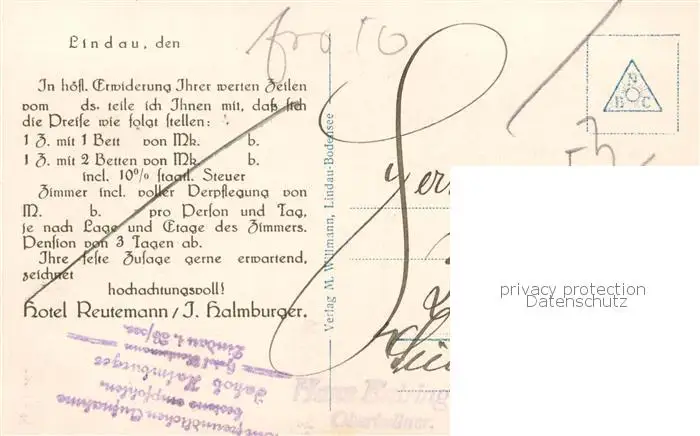 Lindau, den
In höfl. Erwiderung Ihrer werten Zeilen
vom ds. teile ich Ihnen mit, daß sich
die Preise wie folgt stellen:
1 Z. mit 1 Bett von Mk. b.
1 Z. mit 2 Betten von Mk. b.
incl. 10% staatl. Steuer
Zimmer incl. voller Verpflegung von
M. b. pro Person und Tag,
je nach Lage und Etage des Zimmers.
Pension von 3 Tagen ab.
Ihre feste Zusage gerne erwartend,
zeichnet
hochachtungsvoll!
Hotel Reutemann / J. Halmburger.
Verlag M. Willmann, Lindau-Bodensee
N
B C
privacy protection
Datenschutz
freundlichen Aufnahme
bestens empfohlen
Jakob Halmburger
Hotel Reutemann
Lindau i. B
Oberkellner.